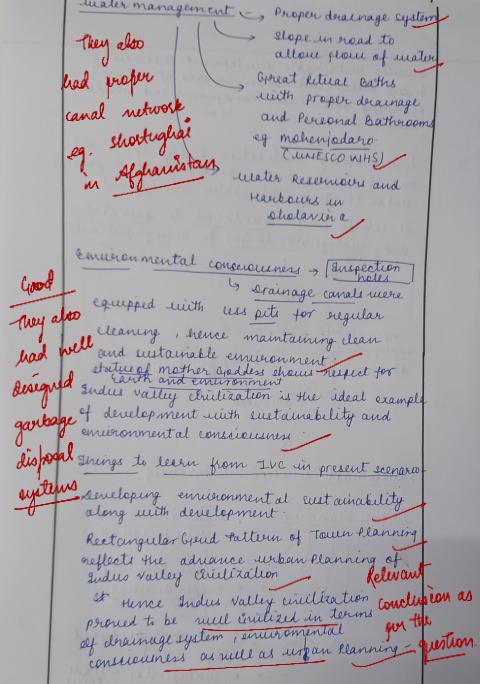 Water management → Proper drainage system
→ Slope in road to
allow flow of water
→ Great Ritual Baths
with proper drainage
and Personal Bathrooms
eg mohenjodaro
(UNESCO WHS)
→ Water Reservoirs and
Harbours in
Dholavira
They also
had proper
canal network
eg. Shortughai
in Afghanistan
Environmental consciousness → Inspection
holes
↳ Drainage canals were
equipped with cess pits for regular
cleaning, hence maintaining clean
and sustainable environment.
Statue of mother Goddess shows respect for
Earth and environment
Indus Valley Civilization is the ideal example
of development with sustainability and
environmental consciousness
Good
They also
had well
designed
garbage
disposal
systems
Things to learn from IVC in present scenario
Developing environmental sustainability
along with development.
Rectangular Grid Pattern of Town Planning
reflects the advance urban Planning of
Indus Valley Civilization
Hence Indus Valley civilization
proved to be well civilized in terms
of drainage system, enviromental
consciousness as well as urban Planning
Relevant
conclusion as
per the
question.